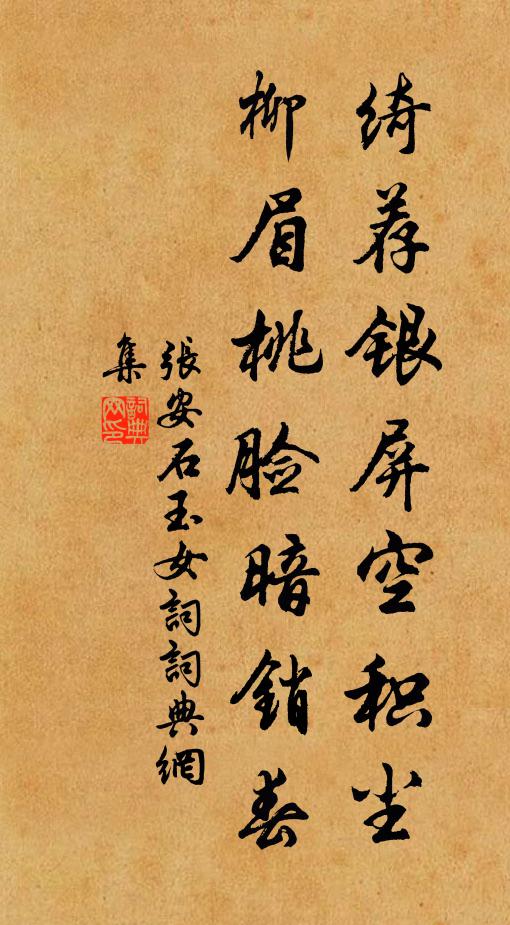 绮荐银屏空积尘
柳眉桃脸暗销春
張安石玉女詞詞典網
集
詞典網印